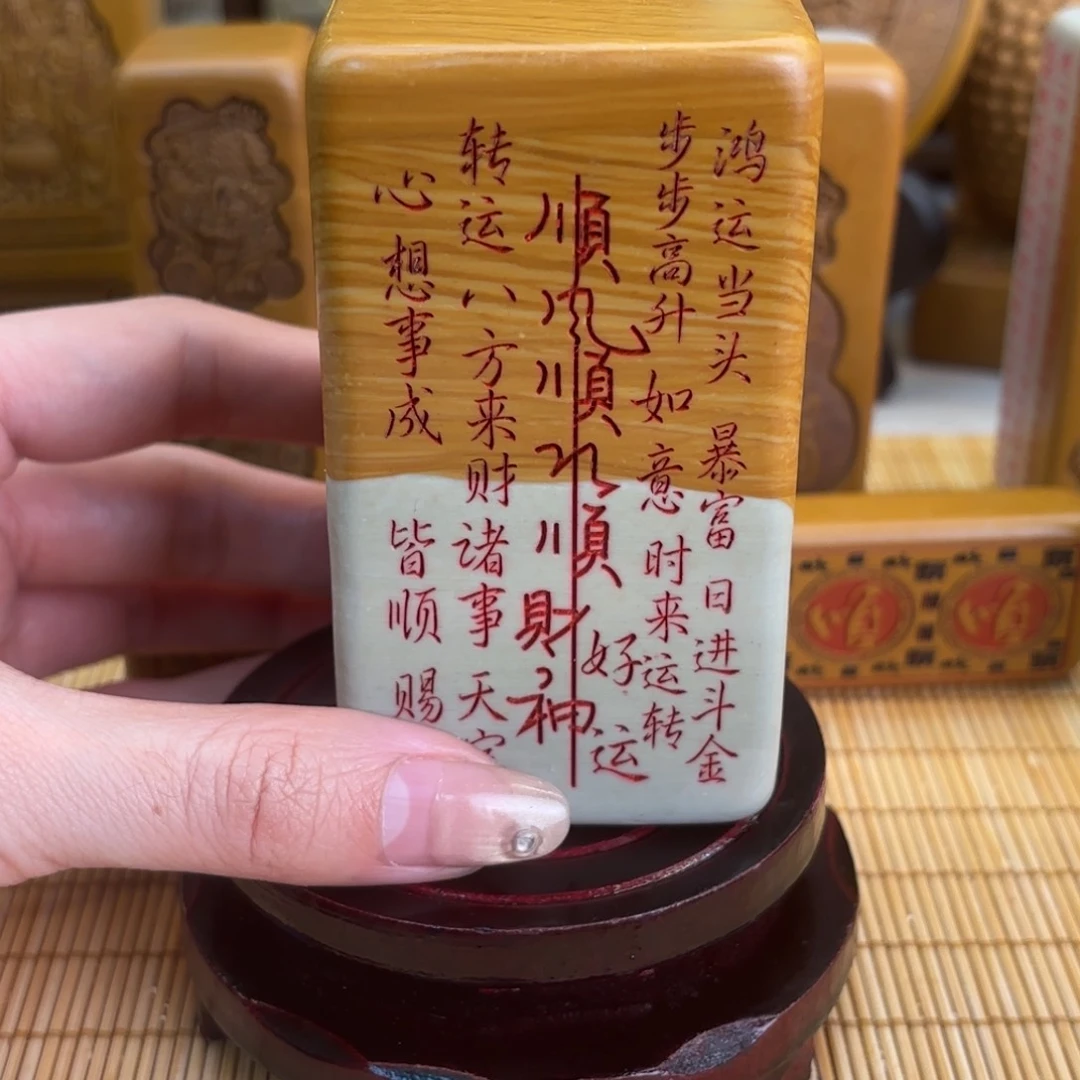 鸿运当头 暴富 日进斗金
步步高升 如意 时来运转
好运
順风順水順財神
转运八方来财诸事天
心想事成 皆顺 赐
順
順